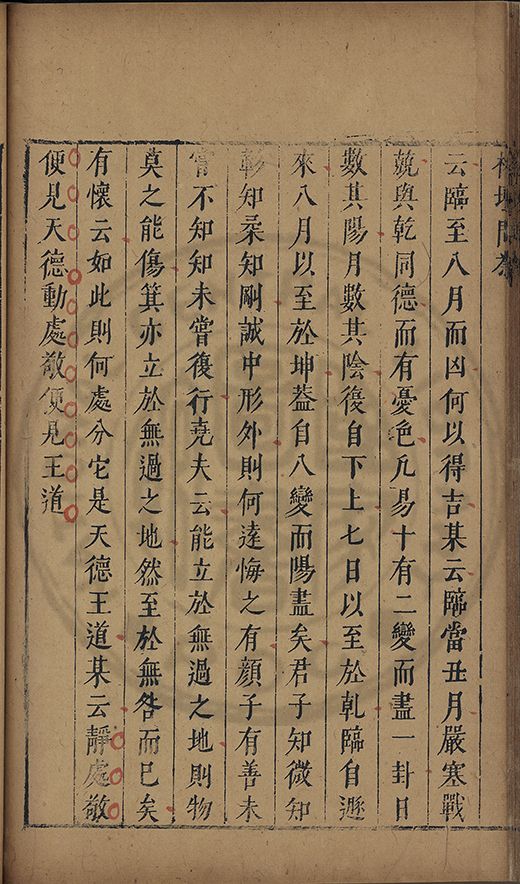 云臨至八月而凶何以得吉某云臨當丑月嚴寒戰
兢與乾同德而有憂色凡易十有二變而盡一卦日
數其陽月數其陰復自下上七日以至於乾臨自遯
來八月以至於坤葢自八變而陽盡矣君子知微知
彰知柔知剛誠中形外則何達悔之有顔子有善未
嘗不知知未嘗復行堯夫云能立於無過之地則物
莫之能傷箕亦立於無過之地然至於無咎而已矣
有懷云如此則何處分它是天德王道某云靜處敬
便見天德動處敬便見王道